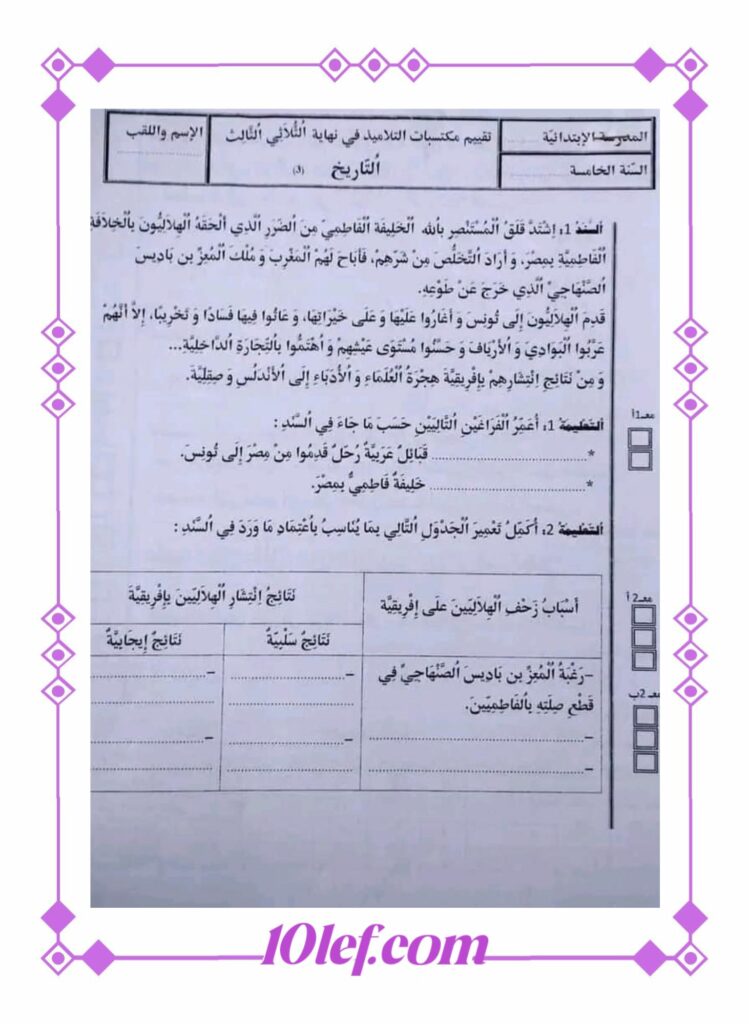 المدرسة الإبتدائيّة
السّنة الخامسة
تقييم مكتسبات التلاميذ في نهاية اَلثُّلَاثِي اَلثَّالِث
اَلتَّارِيخ (3)
الإسم واللقب
اَلسَّنَدُ 1: اِشْتَدَّ قَلَقُ اَلْمُسْتَنْصِرِ بِاَللهِ اَلْخَلِيفَةِ اَلْفَاطِمِيِّ مِنَ اَلضَّرَرِ اَلَّذِي أَلْحَقَهُ اَلْهِلَالِيُّونَ بِاَلْخِلَافَةِ
اَلْفَاطِمِيَّةِ بِمِصْرَ، وَ أَرَادَ اَلتَّخَلُّصَ مِنْ شَرِّهِمْ، فَأَبَاحَ لَهُمْ اَلْمَغْرِبَ وَ مُلْكَ اَلْمُعِزِّ بن بَادِيسَ
اَلصَّنْهَاجِيِّ اَلَّذِي خَرَجَ عَنْ طَوْعِهِ.
قَدِمَ اَلْهِلَالِيُّونَ إِلَى تُونسَ وَ أَغَارُوا عَلَيْهَا وَ عَلَى خَيْرَاتِهَا، وَ عَاثُوا فِيهَا فَسَادًا وَ تَخْرِيبًا، إِلاَّ أَنَّهُمْ
عَرَّبُوا اَلْبَوَادِيَ وَ اَلْأَرْيَافَ وَ حَسَّنُوا مُسْتَوَى عَيْشِهِمْ وَ اَهْتَمُّوا بِاَلتِّجَارَةِ اَلدَّاخِلِيَّةِ...
وَ مِنْ نَتَائِجِ اِنْتِشَارِهِمْ بِإِفْرِيقِيَّةَ هِجْرَةُ اَلْعُلَمَاءِ وَ اَلْأُدَبَاءِ إِلَى اَلْأَنْدَلُسِ وَ صِقِلِّيَّةَ.
معـ1أ
اَلتَّعْلِيمَةُ 1: أُعَمِّرُ اَلْفَرَاغَيْنِ اَلتَّالِيَيْنِ حَسَبَ مَا جَاءَ فِي اَلسَّنَدِ :
* ........................ قَبَائِلُ عَرَبِيَّةٌ رُحَّلٌ قَدِمُوا مِنْ مِصْرَ إِلَى تُونسَ.
* ........................ خَلِيفَةٌ فَاطِمِيٌّ بِمِصْرَ.
اَلتَّعْلِيمَةُ 2: أُكَمِّلُ تَعْمِيرَ اَلْجَدْوَلِ اَلتَّالِي بِمَا يُنَاسِبُ بِاَعْتِمَادِ مَا وَرَدَ فِي اَلسَّنَدِ :
معـ2 أ
أَسْبَابُ زَحْفِ اَلْهِلَالِيِّينَ عَلَى إِفْرِيقِيَّة
نَتَائِجُ اِنْتِشَارِ اَلْهِلَالِيِّينَ بِإِفْرِيقِيَّةَ
نَتَائِجُ سَلْبِيَّةٌ
نَتَائِجُ إِيجَابِيَّةٌ
–رَغْبَةُ اَلْمُعِزِّ بن بَادِيسَ اَلصَّنْهَاجِيِّ فِي
قَطْعِ صِلَتِهِ بِاَلْفَاطِمِيِّينَ.
–........................
–........................
–........................
–........................
–........................
–........................
معـ 2ب
10lef.com